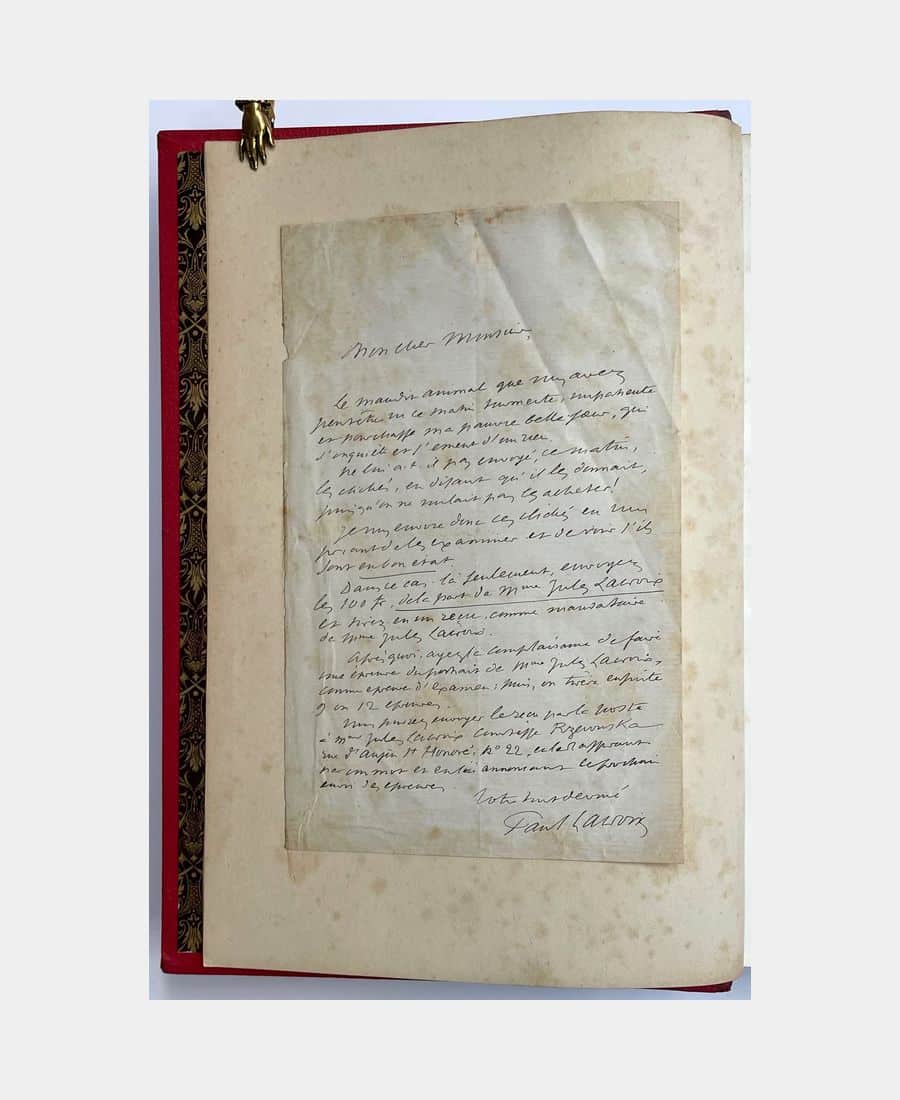 Mon cher Monsieur,
Le maudit animal que vous avez
peut-être vu ce matin tourmente, impatiente
et pourchasse ma pauvre belle sœur, qui
s'inquiète et s'émeut d'un rien.
Ne lui a-t-il pas envoyé ce matin,
les clichés, en disant qu'il les donnait,
puisqu'on ne voulait pas les acheter!
Je vous envoie donc ces clichés en vous
priant de les examiner et de voir s'ils
sont en bon état.
Dans ce cas-là seulement, envoyez
les 100 fr. de la part de Mme Jules Lacroix
et tirez en un reçu, comme mandataire
de Mme Jules Lacroix.
Après quoi, ayez la complaisance de faire
une épreuve du portrait de Mme Jules Lacroix,
comme épreuve d'examen; puis, on tirera ensuite
9 ou 12 épreuves.
Vous pouvez envoyer le reçu par la poste
à Mme Jules Lacroix Comtesse Rzewuska
rue d'Anjou St Honoré, no 22, en la rassurant
par un mot et en lui annonçant le prochain
envoi des épreuves.
Votre tout dévoué
Paul Lacroix